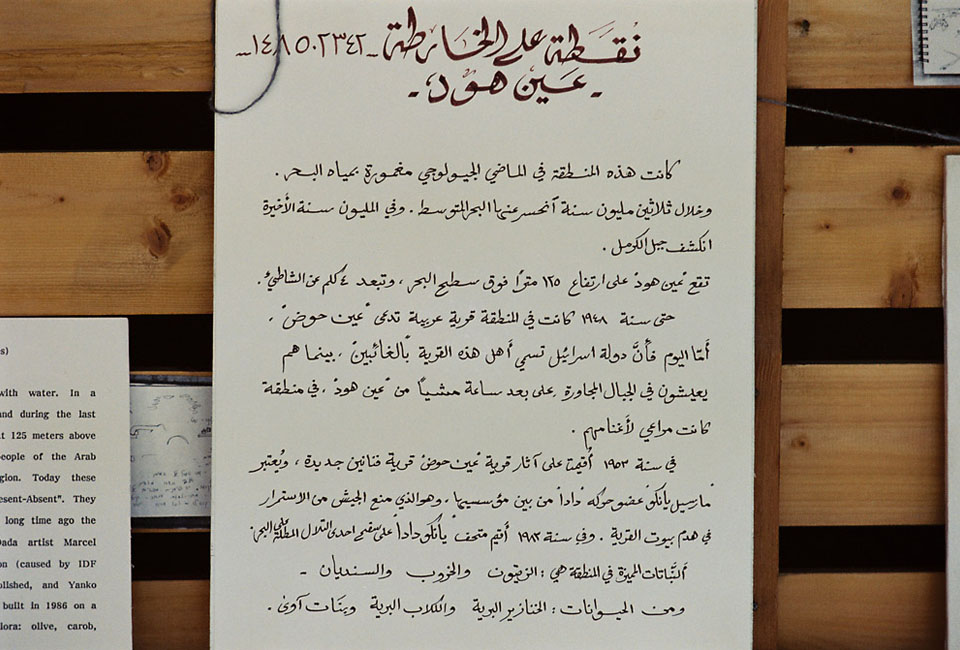 نقطة على الخارطة - ١٤٨٥٠٢٣٤٢ -
- عين هود -
كانت هذه المنطقة في الماضي الجيولوجي مغمورة بمياه البحر .
وخلال ثلاثين مليون سنة أنحسر عنها البحر المتوسط . وفي المليون سنة الأخيرة
انكشف جبل الكرمل .
تقع "عين هود" على ارتفاع ١٢٥ مترًا فوق سطح البحر ، وتبعد ٤ كلم عن الشاطئ .
حتى سنة ١٩٤٨ كانت في المنطقة قرية عربية تدعى "عين حوض" ،
أمّا اليوم فأنَّ دولة اسرائيل تسمي أهل هذه القرية "بالغائبين" ، بينما هم
يعيشون في الجبال المجاورة ، على بعد ساعة مشيًا من "عين هود" ، في منطقة
كانت مراعي لأغنامهم .
في سنة ١٩٥٣ أُقيمت على آثار قرية "عين حوض" قرية فنانين جديدة ، ويُعتبر
"مارسيل يانكو" عضو حركه "دادا" من بين مؤسسيها ، وهو الذي منع الجيش من الاستمرار
في هدم بيوت القرية . وفي سنة ١٩٨٣ أقيم متحف "يانكو دادا" على سفح احدى التلال المطلّة على البحر .
النّباتات المميزة في المنطقة هي : الزيتون والخروب والسنديان -
ومن الحيوانات : الخنازير البرية والكلاب البرية وبنات آوى .
s)
with water. In a
and during the last
t 125 meters above
people of the Arab
gion. Today these
esent-Absent". They
long time ago the
Dada artist Marcel
on (caused by IDF
olished, and Yanko
built in 1986 on a
lora: olive, carob,